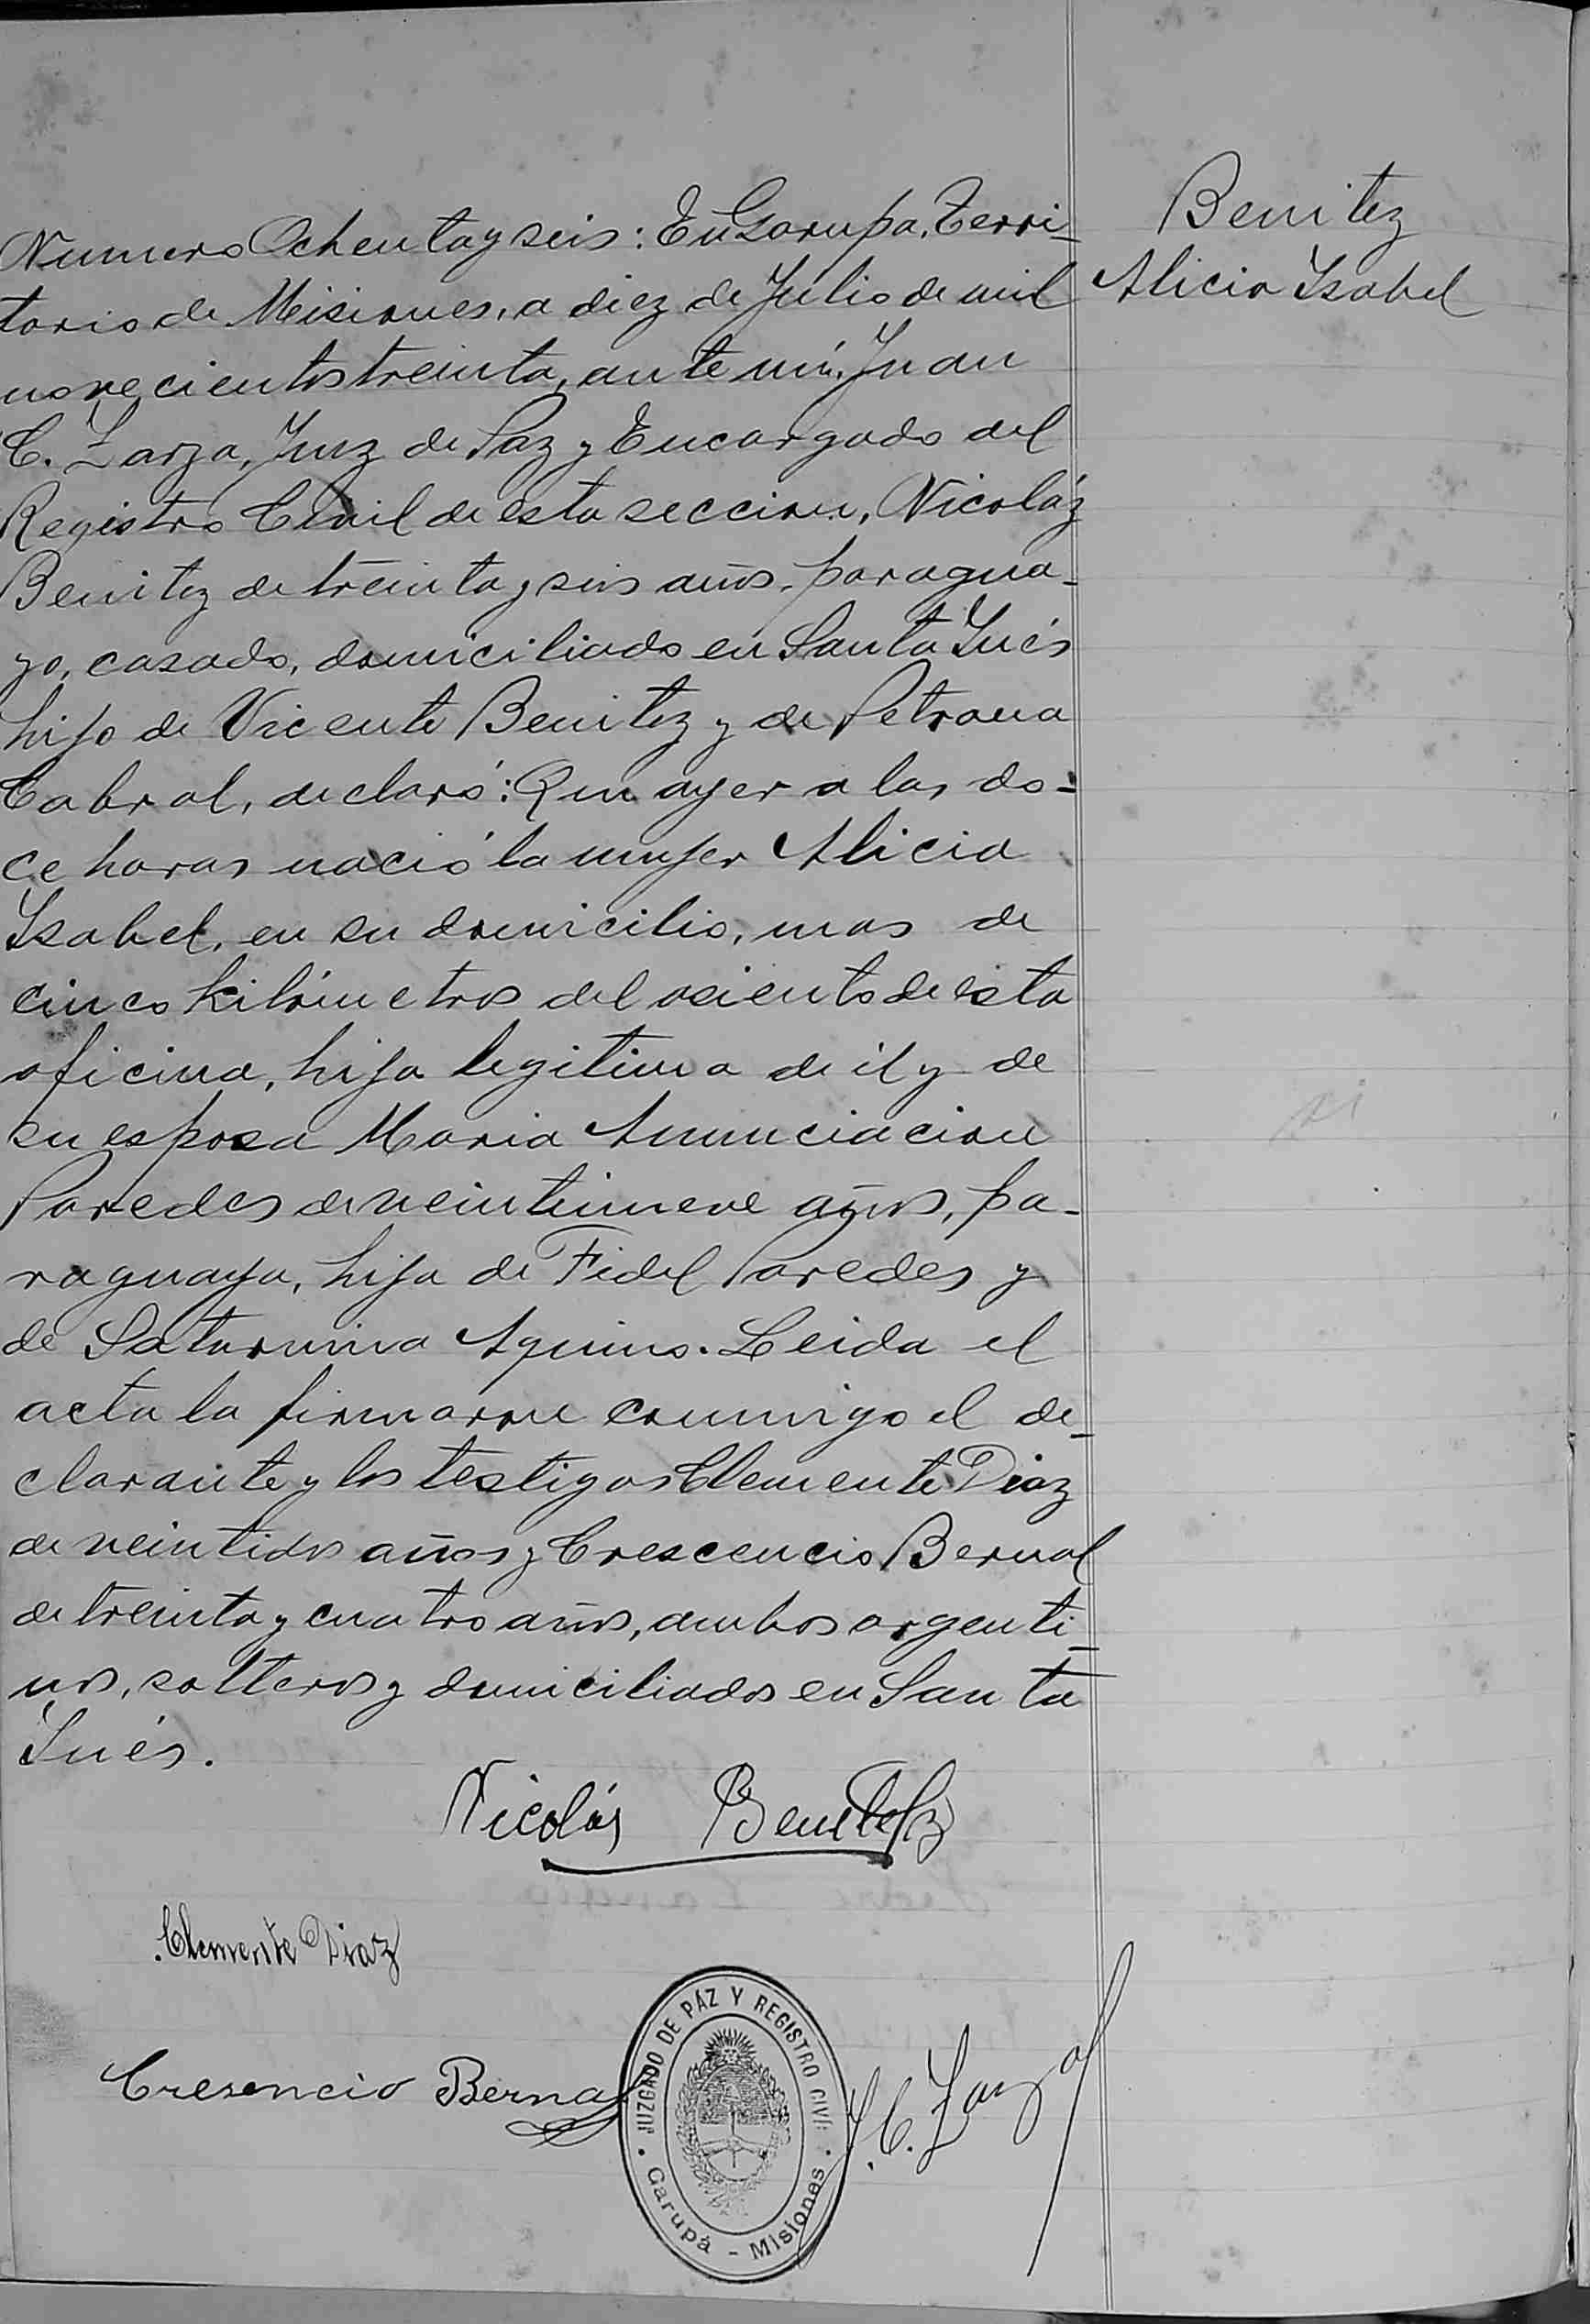 Benitez
Alicia Isabel
Numero Ochenta y seis: En Garupa, Terri-
torio de Misiones, a diez de Julio de mil
novecientos treinta, ante mí, Juan
C. Zarza, Juez de Paz y Encargado del
Registro Civil de esta seccion, Nicoláz
Benitez de treinta y seis años, paragua-
yo, casado, domiciliado en Santa Inés
hijo de Vicente Benitez y de Petrona
Cabral, declaró: Que ayer a las do-
ce horas nació la mujer Alicia
Isabel, en su domicilio, mas de
cinco kilómetros del asiento de esta
oficina, hija legitima de él y de
su esposa Maria Anunciacion
Paredes de veintinueve años, pa-
raguaya, hija de Fidel Paredes y
de Saturnina Aquino. Leida el
acta la firmaron conmigo el de-
clarante y los testigos Clemente Diaz
de veintidos años y Crescencio Bernal
de treinta y cuatro años, ambos argenti-
nos, solteros y domiciliados en Santa
Inés.
Nicolás Benitez
Clemente Diaz
Cresencio Bernal
JUZGADO DE PÁZ Y REGISTRO CIVIL
Garupá - Misiones
J. C. Zarza